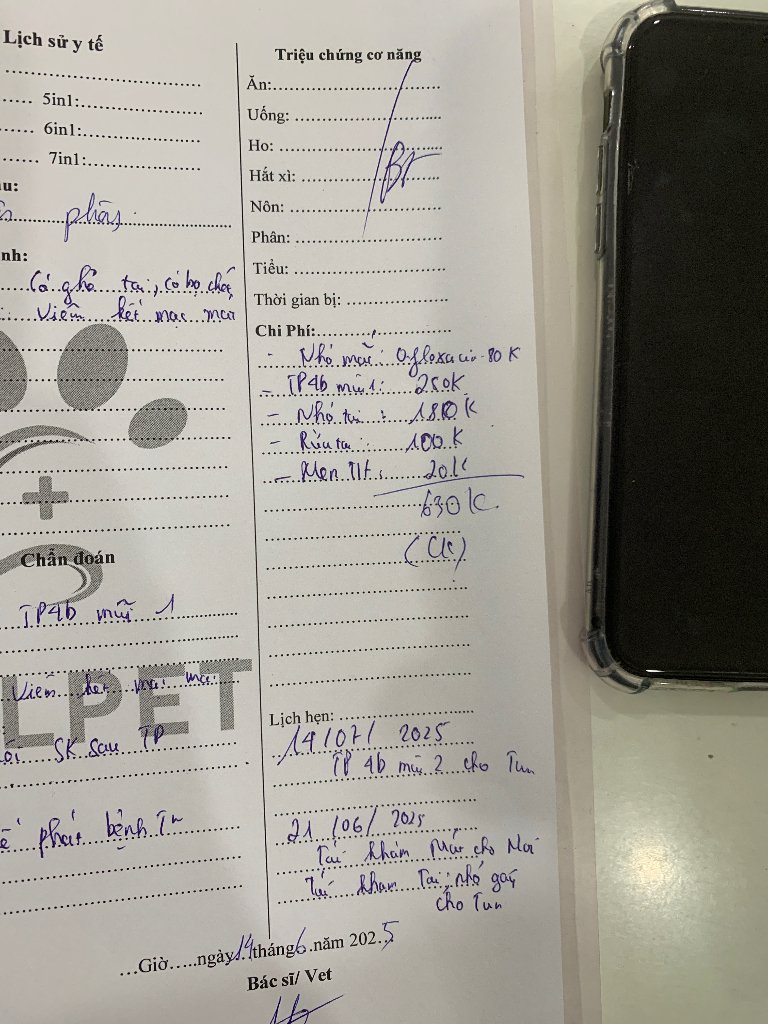 Lịch sử y tế
5in1:
6in1:
7in1:
phâs
nh:
Có ghẻ tai, có bọ chét
Viêm kết mạc mắt
Chẩn đoán
TP4b mũi 1
Viêm kết mạc mắt
LPET
SK sau TP
phát bệnh
Triệu chứng cơ năng
Ăn:
Uống:
Ho:
Hắt xì:
Nôn:
Phân:
Tiểu:
Thời gian bị:
BT
Chi Phí:
- Nhỏ mắt: Ofloxacin 80K
- TP4b mũi 1: 250K
- Nhỏ tai: 180K
- Rửa tai: 100K
- Men TH: 20K
630K
(CK)
Lịch hẹn:
14/07/2025
TP 4b mũi 2 cho Tun
21/06/2025
Tái khám Mắt cho
Tái khám Tai, nhỏ gáy
cho Tun
...Giờ.....ngày 14 tháng 6 năm 2025
Bác sĩ/ Vet